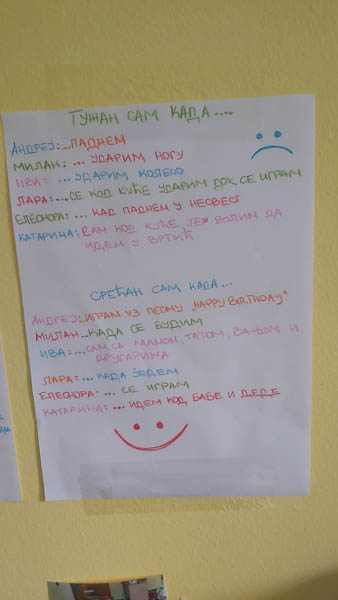 ТУЖАН САМ КАДА....
АНДРЕЈ:...ПАДНЕМ
МИЛАН: ... УДАРИМ НОГУ
ИВА: ... УДАРИМ КОЛЕНО
ЛАРА:...СЕ КОД КУЋЕ УДАРИМ ДОК СЕ ИГРАМ
ЕЛЕОНОРА:... КАД ПАДНЕМ У НЕСВЕСТ
КАТАРИНА: САМ КОД КУЋЕ ЈЕР ВОЛИМ ДА
ИДЕМ У ВРТИЋ
СРЕЋАН САМ КАДА...
АНДРЕЈ:...ИГРАМ УЗ ПЕСМУ „HAPPY BIRTHDAY"
МИЛАН...КАДА СЕ БУДИМ
ИВА:...САМ СА МАМОМ, ТАТОМ, ВАЊОМ И
ДРУГАРИМА
ЛАРА:... КАДА ЈЕДЕМ
ЕЛЕОНОРА:... СЕ ИГРАМ
КАТАРИНА:... ИДЕМ КОД БАБЕ И ДЕДЕ